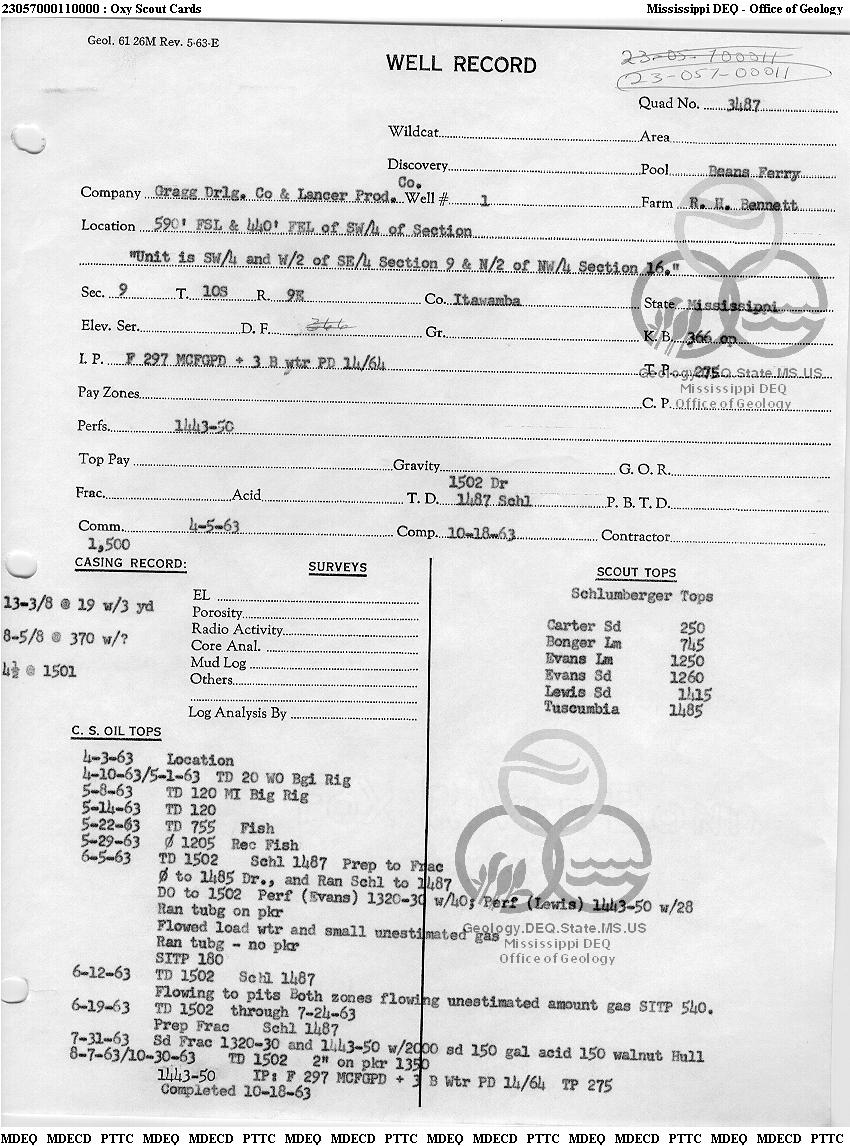 23057000110000 : Oxy Scout Cards Mississippi DEQ - Office of Geology
Geol. 61 26M Rev. 5-63-E
WELL RECORD
23-05-700011
23-057-00011
Quad No. 3487
Wildcat Area
Discovery Pool Beans Ferry
Company Gragg Drlg. Co & Lancer Prod. Co. Well # 1 Farm R. H. Bennett
Location 590' FSL & 440' FEL of SW/4 of Section
"Unit is SW/4 and W/2 of SE/4 Section 9 & N/2 of NW/4 Section 16."
Sec. 9 T. 10S R. 9E Co. Itawamba State Mississippi
Elev. Ser. D. F. 366 Gr. K. B. 366 op
I. P. F 297 MCFGPD + 3 B wtr PD 14/64 T. P. 275
Geology.DEQ.State.MS.US
Mississippi DEQ
Office of Geology
Pay Zones C. P.
Perfs. 1443-50
Top Pay Gravity G. O. R.
Frac. Acid T. D. 1502 Dr
1487 Schl P. B. T. D.
Comm. 4-5-63 Comp. 10-18-63 Contractor
1,500
CASING RECORD: SURVEYS SCOUT TOPS
13-3/8 @ 19 w/3 yd
8-5/8 @ 370 w/?
4½ @ 1501
EL
Porosity
Radio Activity
Core Anal.
Mud Log
Others
Log Analysis By
Schlumberger Tops
Carter Sd 250
Bonger Lm 745
Evans Lm 1250
Evans Sd 1260
Lewis Sd 1415
Tuscumbia 1485
C. S. OIL TOPS
4-3-63 Location
4-10-63/5-1-63 TD 20 WO Bgi Rig
5-8-63 TD 120 MI Big Rig
5-14-63 TD 120
5-22-63 TD 755 Fish
5-29-63 Ø 1205 Rec Fish
6-5-63 TD 1502 Schl 1487 Prep to Frac
Ø to 1485 Dr., and Ran Schl to 1487
DO to 1502 Perf (Evans) 1320-30 w/40; Perf (Lewis) 1443-50 w/28
Ran tubg on pkr
Flowed load wtr and small unestimated gas
Ran tubg - no pkr
SITP 180
Geology.DEQ.State.MS.US
Mississippi DEQ
Office of Geology
6-12-63 TD 1502 Schl 1487
Flowing to pits Both zones flowing unestimated amount gas SITP 540.
6-19-63 TD 1502 through 7-24-63
Prep Frac Schl 1487
7-31-63 Sd Frac 1320-30 and 1443-50 w/2000 sd 150 gal acid 150 walnut Hull
8-7-63/10-30-63 TD 1502 2" on pkr 1350
1443-50 IP: F 297 MCFGPD + 3 B Wtr PD 14/64 TP 275
Completed 10-18-63
MDEQ MDECD PTTC MDEQ MDECD PTTC MDEQ MDECD PTTC MDEQ MDECD PTTC MDEQ MDECD PTTC MDEQ MDECD PTTC